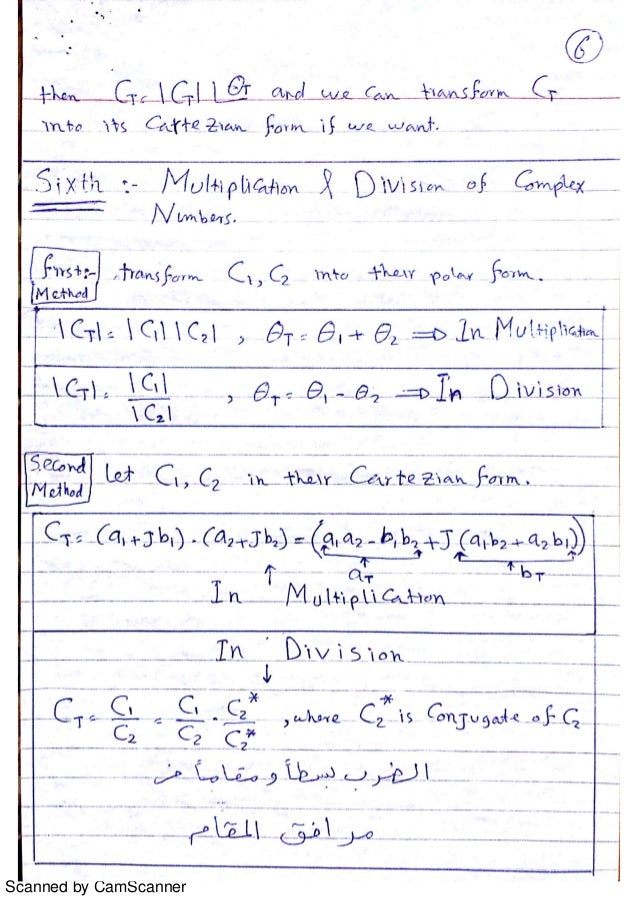 6
then C_T = |C_T| ∠θ_T and we can transform C_T
into its Cartezian form if we want.
Sixth :- Multiplication & Division of Complex
Numbers.
first:- Method transform C₁, C₂ into their polar form.
|C_T| = |C₁| |C₂| , θ_T = θ₁ + θ₂ ⇒ In Multiplication
|C_T| = |C₁| / |C₂| , θ_T = θ₁ - θ₂ ⇒ In Division
Second Method Let C₁, C₂ in their Cartezian form.
C_T = (a₁+Jb₁) . (a₂+Jb₂) = (a₁a₂ - b₁b₂ + J (a₁b₂ + a₂b₁))
↑ a_T b_T
In Multiplication
In Division
↓
C_T = C₁/C₂ = C₁/C₂ . C₂*/C₂* , where C₂* is Conjugate of C₂
الضرب بسطاً ومقاماً في
مرافق المقام
Scanned by CamScanner